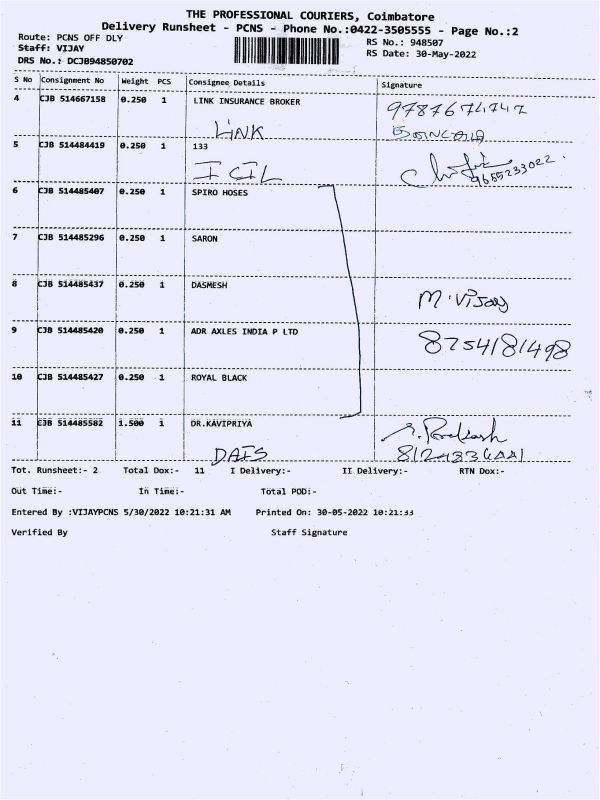 THE PROFESSIONAL COURIERS, Coimbatore
Delivery Runsheet - PCNS - Phone No.:0422-3505555 - Page No.:2
Route: PCNS OFF DLY RS No.: 948507
Staff: VIJAY RS Date: 30-May-2022
DRS No.: DCJB94850702
S No Consignment No Weight PCS Consignee Details Signature
4 CJB 514667158 0.250 1 LINK INSURANCE BROKER
LINK
5 CJB 514484419 0.250 1 133
ICIL 9655233022
6 CJB 514485407 0.250 1 SPIRO HOSES
7 CJB 514485296 0.250 1 SARON
8 CJB 514485437 0.250 1 DASMESH
M. Vijay
9 CJB 514485420 0.250 1 ADR AXLES INDIA P LTD
8754181498
10 CJB 514485427 0.250 1 ROYAL BLACK
11 CJB 514485582 1.500 1 DR.KAVIPRIYA
Tot. Runsheet:- 2 Total Dox:- 11 I Delivery:- II Delivery:- RTN Dox:-
Out Time:- In Time:- Total POD:-
Entered By :VIJAYPCNS 5/30/2022 10:21:31 AM Printed On: 30-05-2022 10:21:33
Verified By Staff Signature